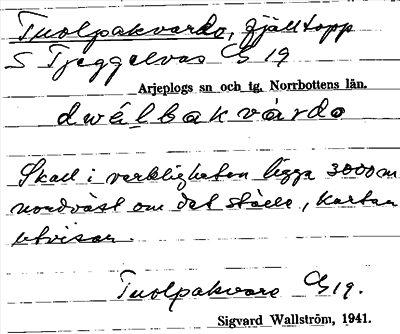 Tuolpakvardo, fjälltopp
S Tjeggelvas G 19
Arjeplogs sn och tg, Norrbottens län.
dwélbakvárdo
Skall i verkligheten ligga 3000 m
nordväst om det ställe, kartan
utvisar.
Tuolpakvare G 19.
Sigvard Wallström, 1941.